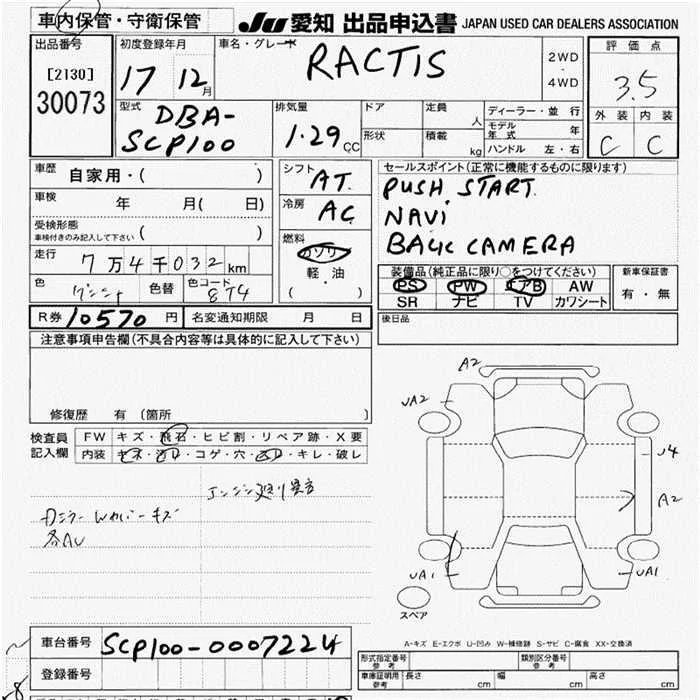 車内保管・守衛保管
JU 愛知 出品申込書 JAPAN USED CAR DEALERS ASSOCIATION
出品番号
[2130]
30073
初度登録年月
17 12月
車名・グレード
RACTIS
2WD
・
4WD
評価点
3.5
外装 内装
C C
型式
DBA-
SCP100
排気量
1.29 CC
ドア
定員
人
形状
積載
kg
ディーラー・並行
モデル年式 年
ハンドル 左・右
車歴
自家用・( )
車検
年 月( 日)
受検形態
車検付きのみ記入して下さい ( )
走行
7万4千032km
色
色替
色コード
8T4
シフト
AT.
冷房
AC
燃料
ガソリン
軽・油
( )
セールスポイント(正常に機能するものに限ります)
PUSH START.
NAVi
BACK CAMERA
装備品(純正品に限り○をつけてください)
PS PW エアB AW
SR ナビ TV カワシート
新車保証書
有・無
R券 10570 円
名変通知期限 月 日
後日品
注意事項申告欄(不具合内容等は具体的に記入して下さい)
修復歴 有 〔箇所 〕
検査員
記入欄
FW キズ・飛石・ヒビ割・リペア跡・X要
内装 キズ・汚レ・コゲ・穴・スレ・キレ・破レ
エンジン廻り異音
キズ
各AU
A2
UA2
U4
A2
UA1
UA1
スペア
A-キズ E-エクボ U-凹み W-補修跡 S-サビ C-腐食 XX-交換済
車台番号
SCP100-0007224
登録番号
形式指定番号
参考
類別区分番号
参考
車庫証明用
参考
長さ cm
幅 cm
高さ cm